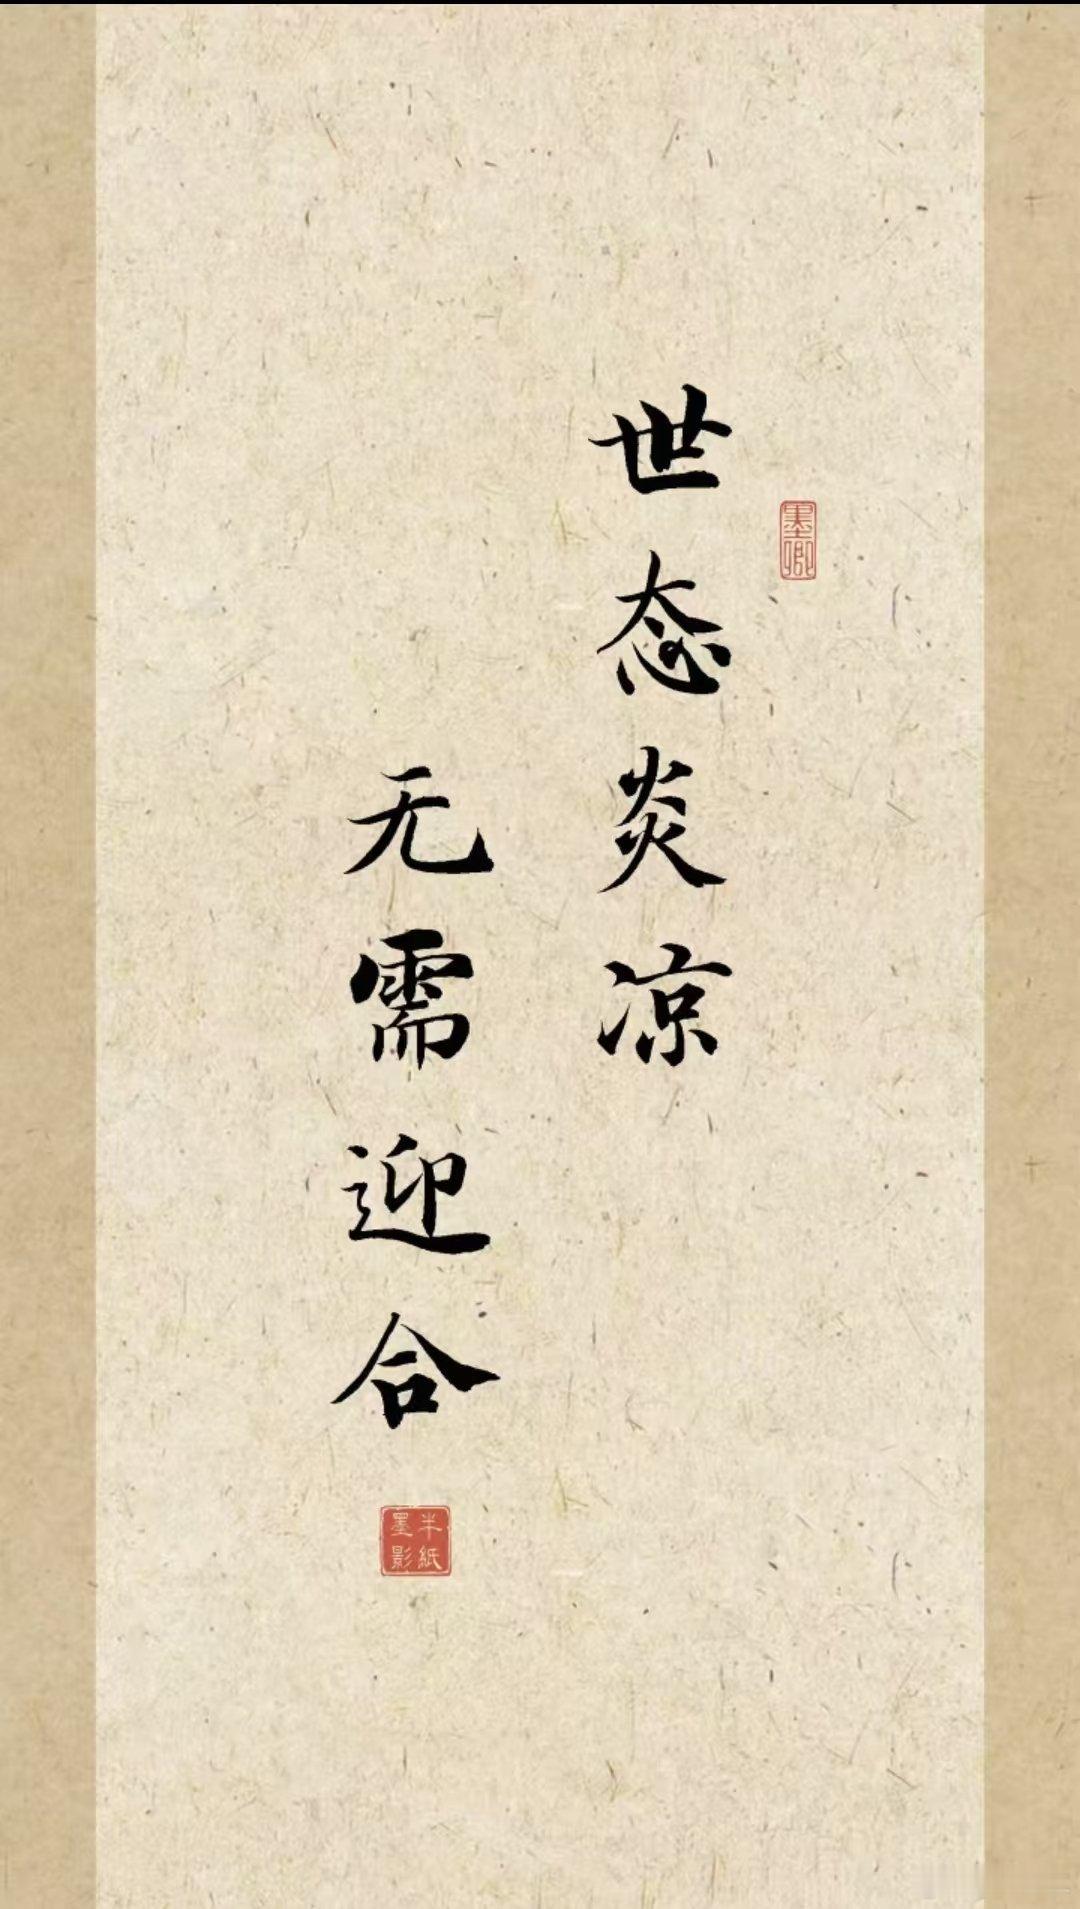 世态炎凉
无需迎合
墨卿
半紙
墨影